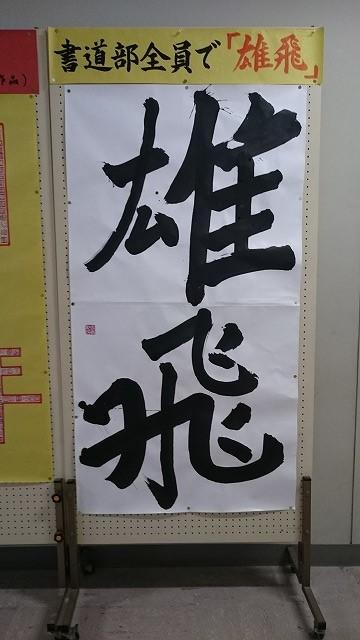 書道部全員で「雄飛」
作品)
雄
飛